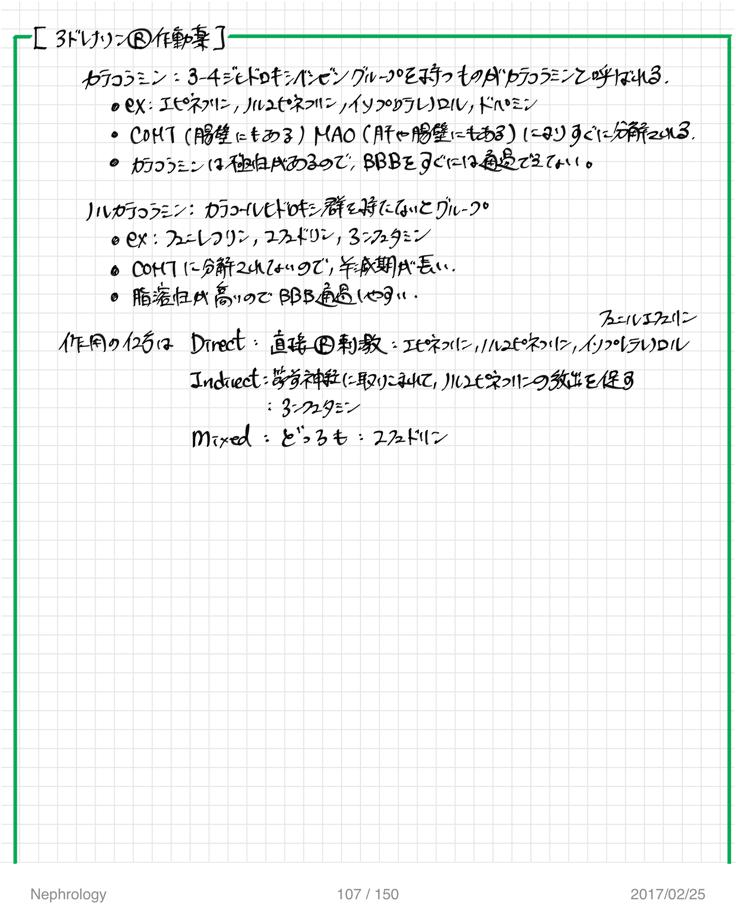 [アドレナリンⓇ作動薬]
カテコラミン：3-4ジヒドロキシベンゼングループを持つものがカテコラミンと呼ばれる.
• ex：エピネフリン, ノルエピネフリン, イソプロテレノロル, ドパミン
• COMT (腸壁にもある) MAO (肝や腸壁にもある) によりすぐに分解される.
• カテコラミンは極性があるので, BBBをすぐには通過できない。
ノルカテコラミン：カテコールヒドロキシ群を持たないグループ
• ex：フェニレフリン, エフェドリン, アンフェタミン
• COMTに分解されないので, 半減期が長い.
• 脂溶性が高いのでBBB通過しやすい.
フェニルエフェリン
作用の仕方は Direct：直接Ⓡ刺激：エピネフリン, ノルエピネフリン, イソプロテレノロル
Indirect：節前神経に取りこまれて, ノルエピネフリンの放出を促す
：アンフェタミン
Mixed：どっちも：エフェドリン
Nephrology
107 / 150
2017/02/25